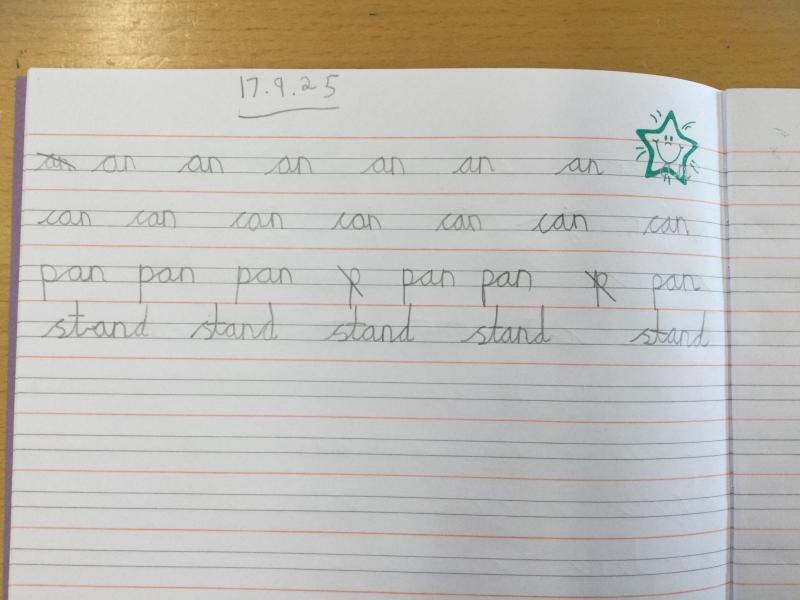 17.9.25
an an an an an an an
can can can can can can can
pan pan pan p pan pan p pan
stand stand stand stand stand